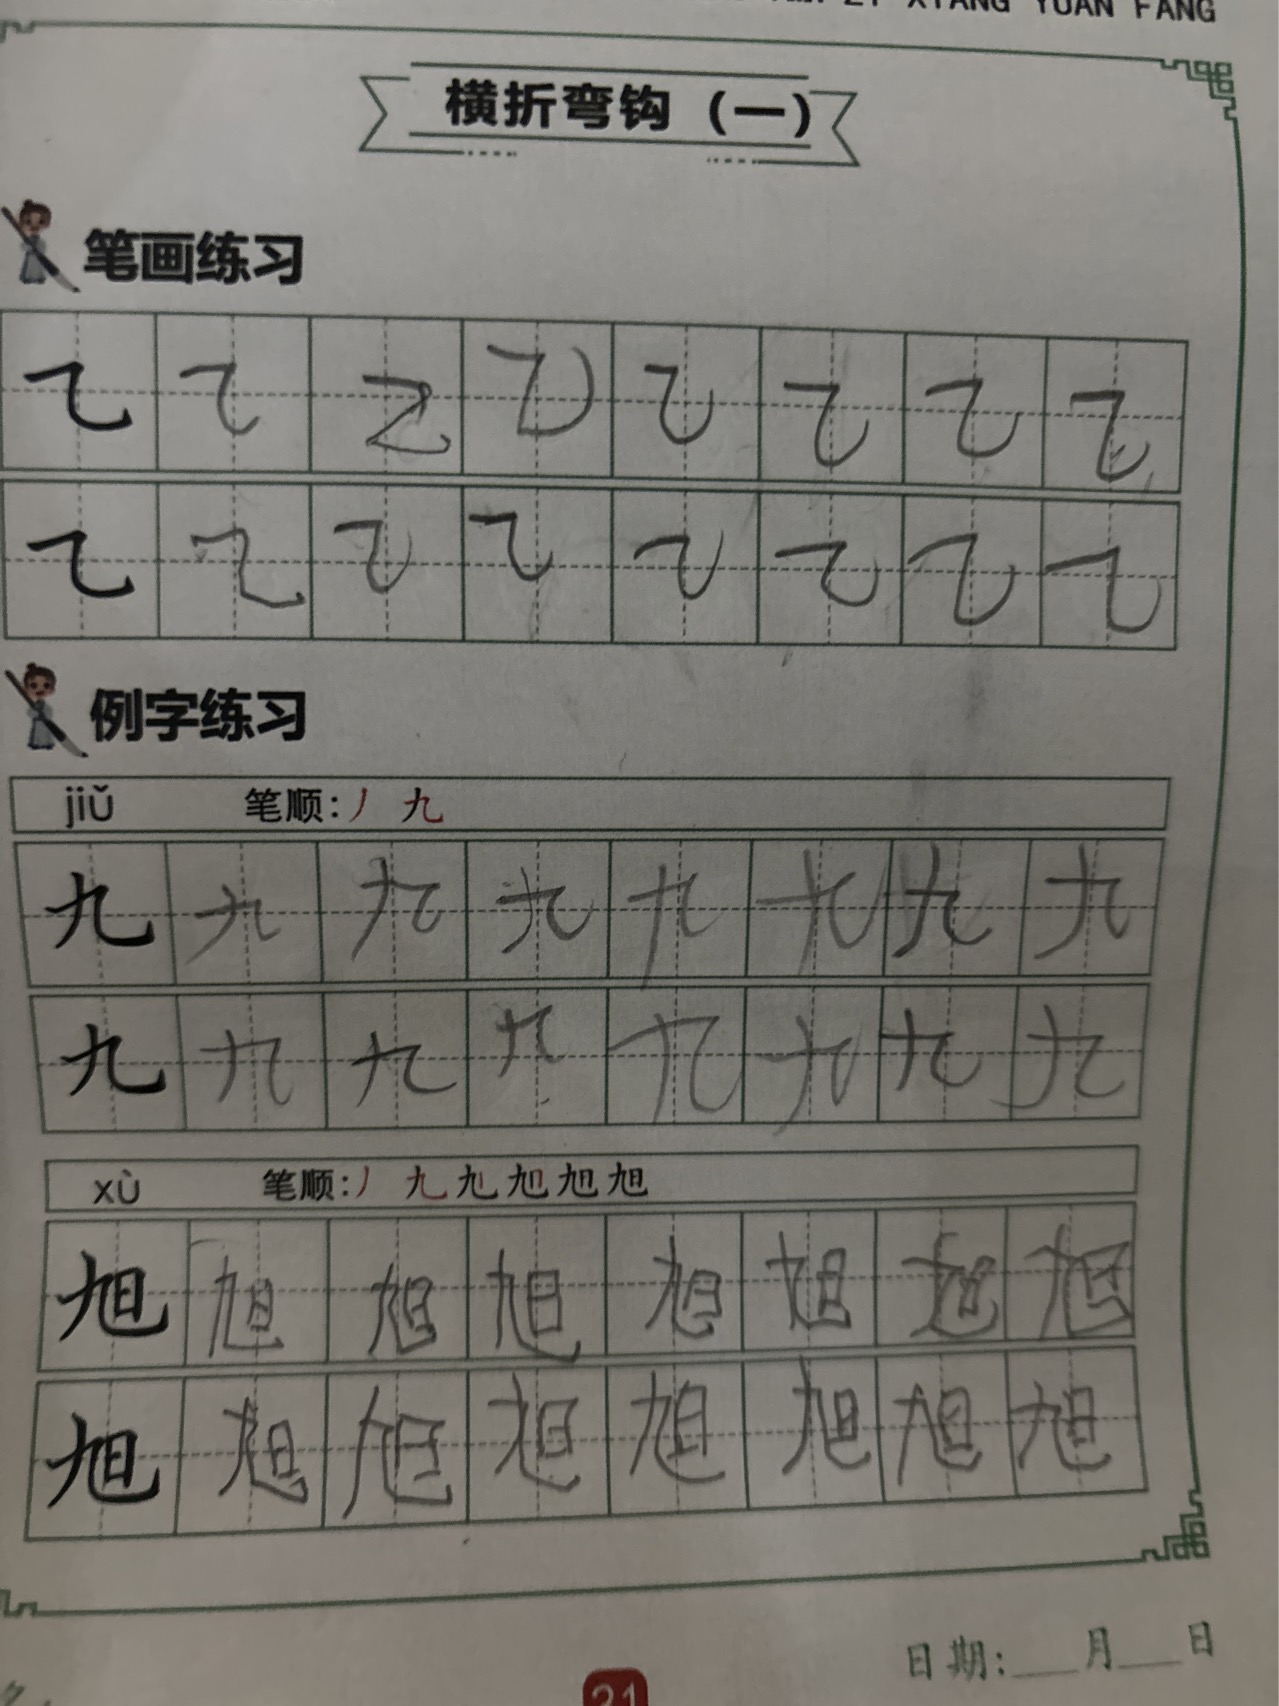 ZI XIANG YUAN FANG
横折弯钩（一）
笔画练习
㇈ ㇈ ㇈ ㇈ ㇈ ㇈ ㇈ ㇈
㇈ ㇈ ㇈ ㇈ ㇈ ㇈ ㇈ ㇈
例字练习
jiǔ 笔顺：丿 九
九 九 九 九 九 九 九 九
九 九 九 九 九 九 九 九
xù 笔顺：丿 九 旭 旭 旭
旭 旭 旭 旭 旭 旭 旭 旭
旭 旭 旭 旭 旭 旭 旭 旭
日期：___月___日
21